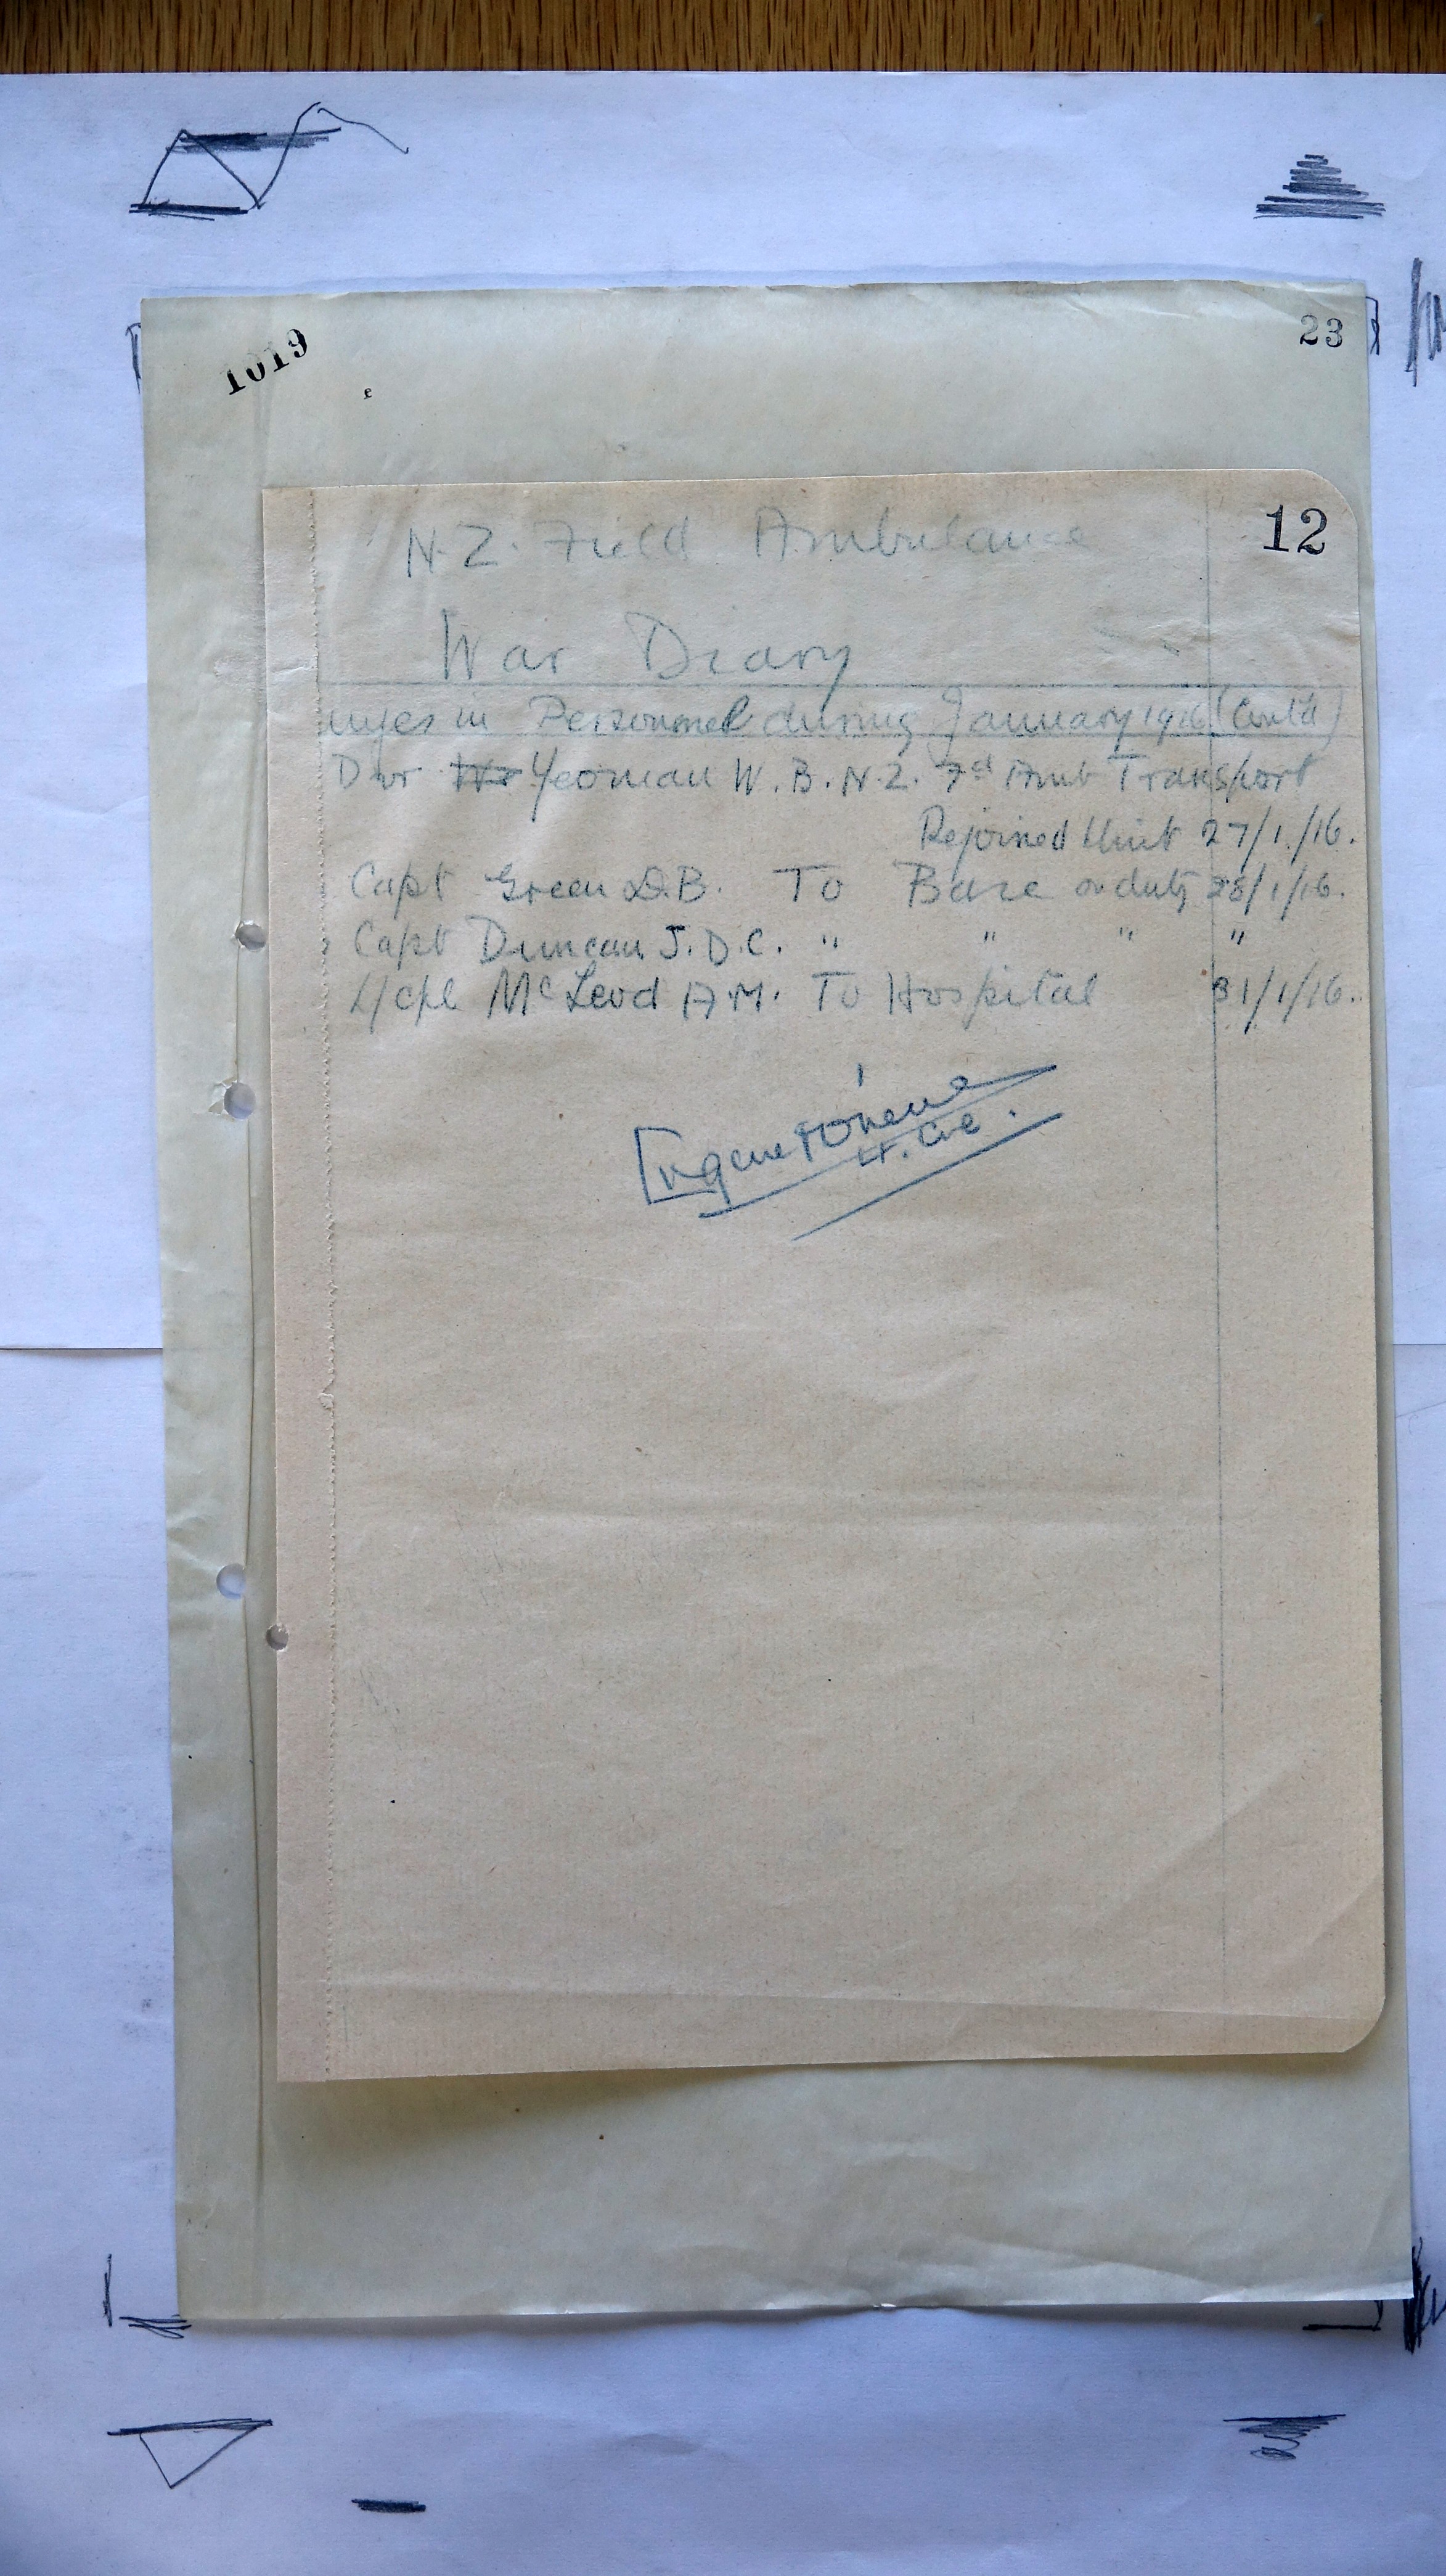 1019
23
12
N.Z. Field Ambulance
War Diary
anges in Personnel during January 1916 (Cont'd)
Dvr Yeoman W.B. N.Z. Fd Amb Transport
Rejoined Unit 27/1/16.
Capt Green D.B. To Base on duty 28/1/16.
Capt Duncan J.D.C. " " " "
L/Cpl McLeod A.M. To Hospital 31/1/16.
Eugene O'Neill
Lt. Col.